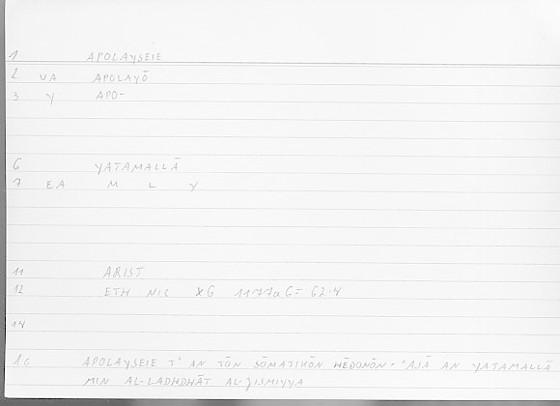 1 APOLAYSEIE
2 VA APOLAYŌ
3 Y APO-
6 YATAMALLĀ
7 EA M L Y
11 ARIST
12 ETH NIC X6 1177a6 = 62.4
14
APOLAYSEIE T' AN TŌN SŌMATIKŌN HĒDONŌN · AN YATAMALLĀ
MIN AL-LADHDHĀT AL-JISMIYYA